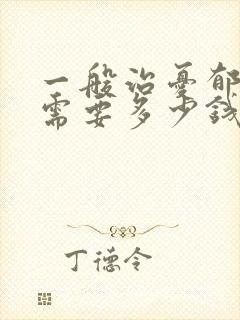 一般治憂郁
需要多少錢
丁德令